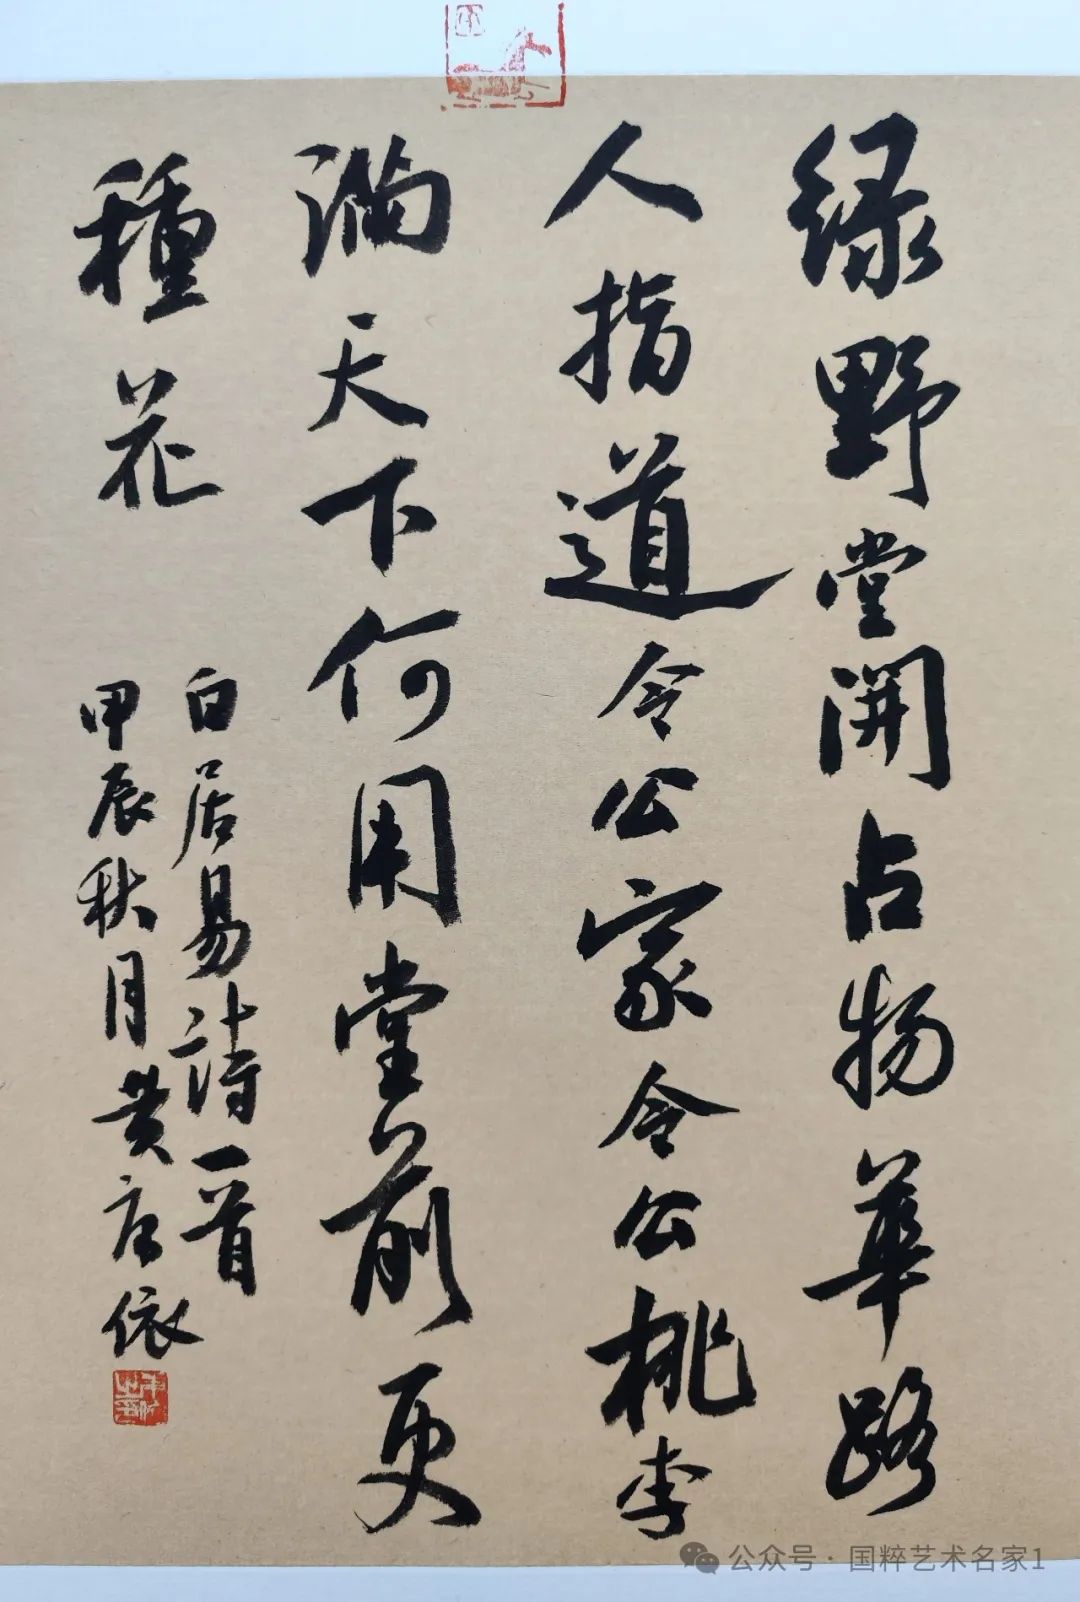 绿野堂開占物華路
人指道令公家令公桃李
满天下何用堂前更
種花
白居易詩一首
甲辰秋月黄唐依
公众号·国粹艺术名家1